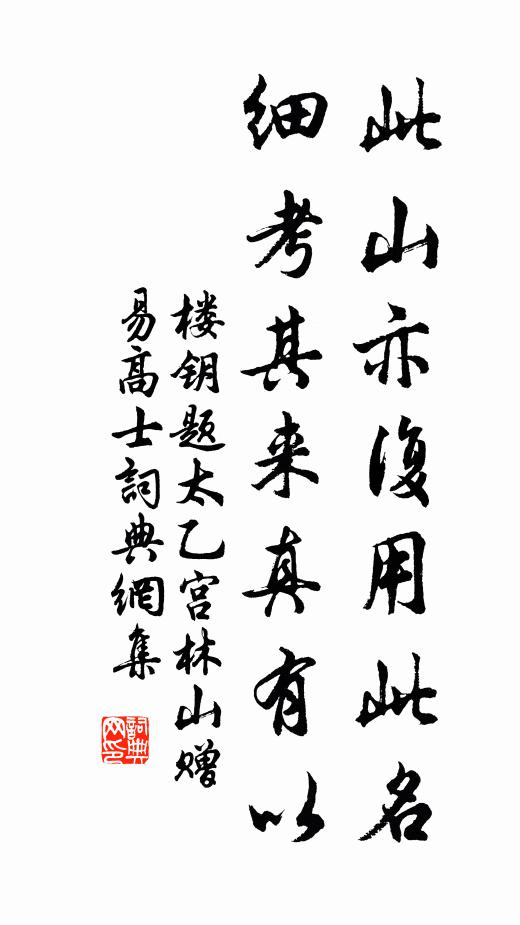 此山亦復用此名
細考其来真有以
楼钥题太乙宫林山赠
易高士詞典網集
詞典
网印